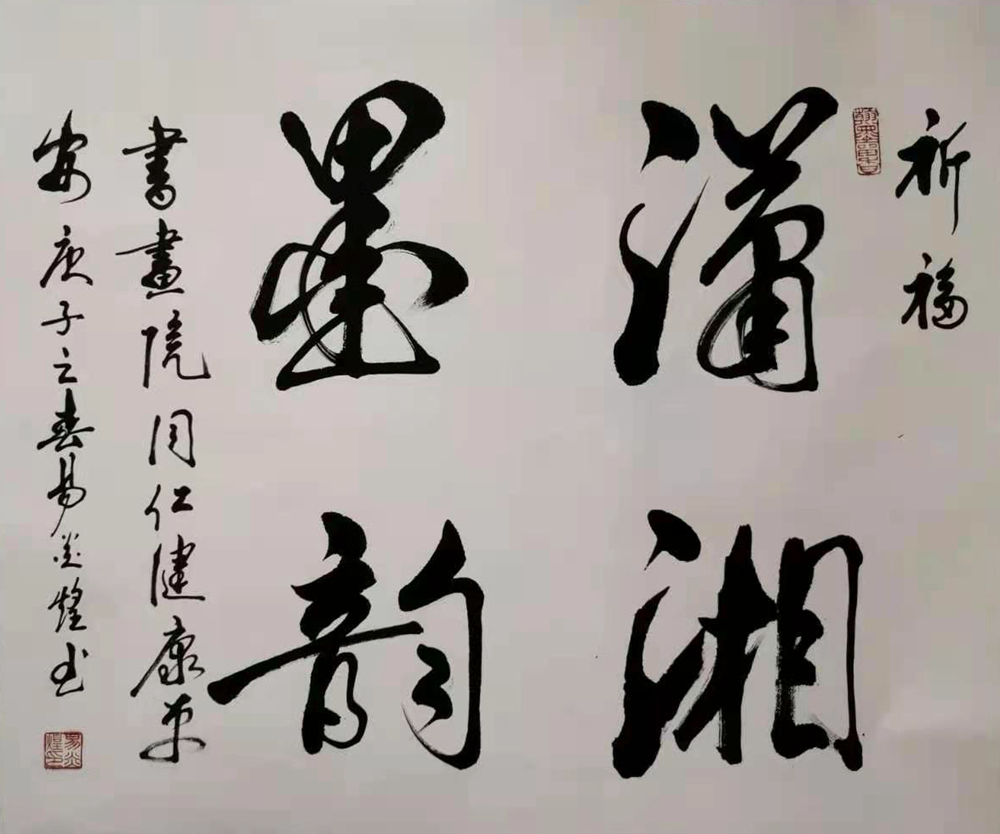 祈福
瀟湘
墨韵
書畫院同仁健康平
安庚子之春易炎煌书